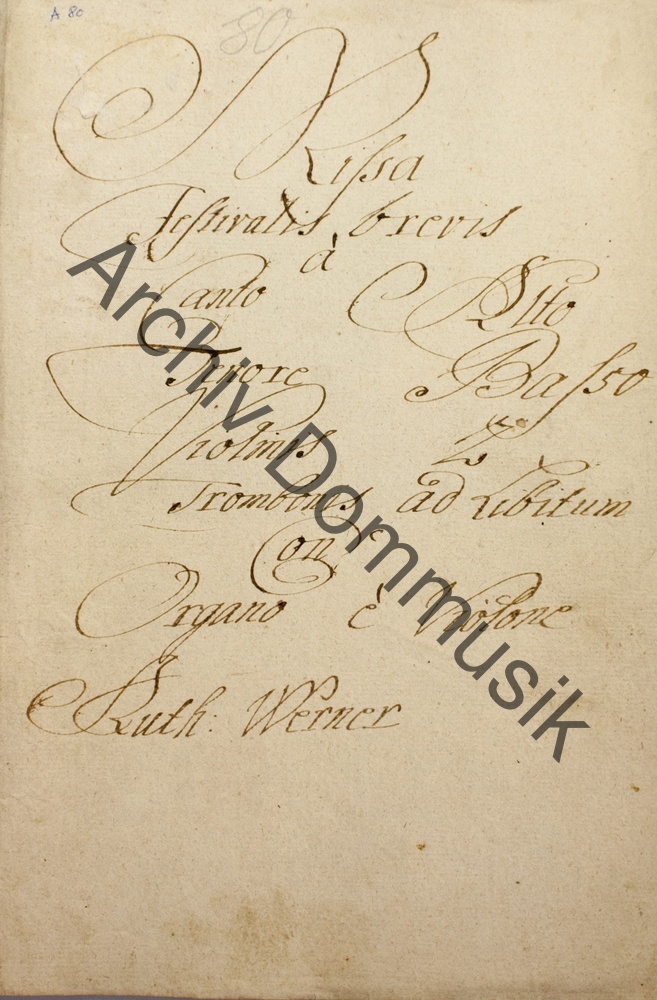 A 80
80
Missa
Festivalis brevis
à
Canto Alto
Tenore Basso
Violinis 2
Trombonis ad Libitum
Con
Organo è Violone
Auth: Werner
Archiv Dommusik